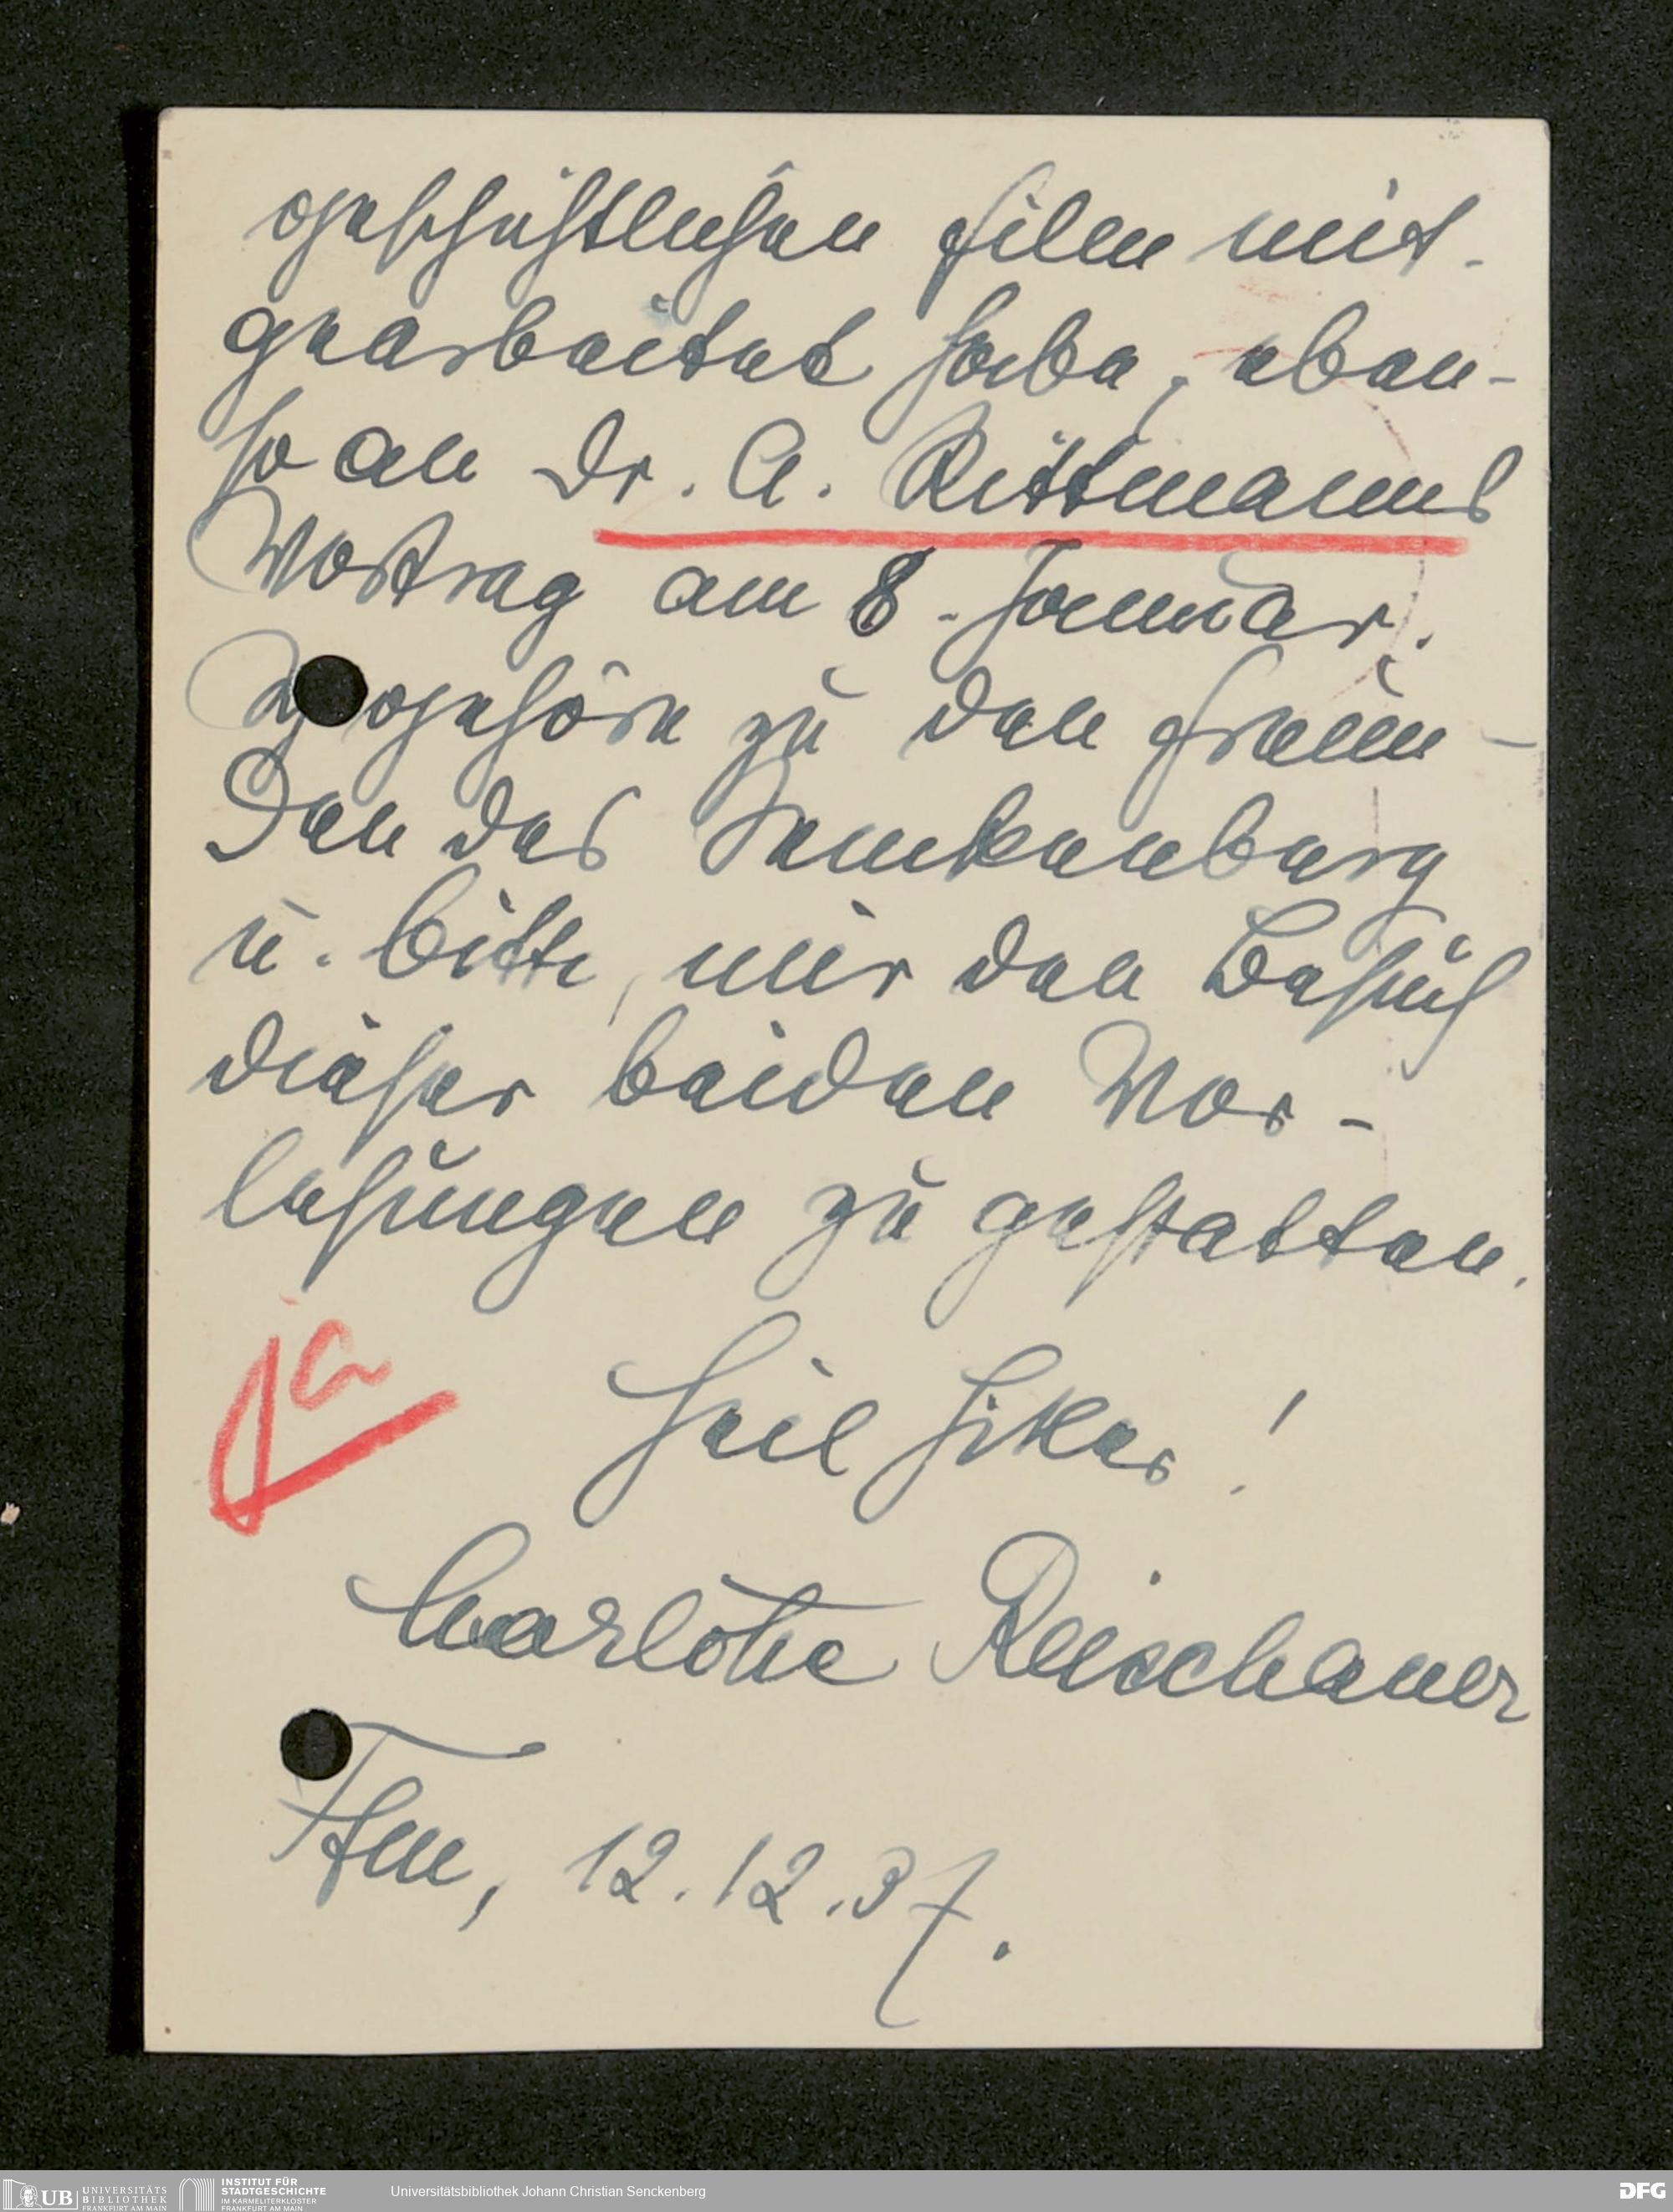 geschichtlichen Film mit-
gearbeitet habe, eben-
so an Dr. A. Rittmanns
Vortrag am 8. Januar.
Ich gehöre zu den Freun-
den des Senkenberg
u. bitte, mir den Besuch
dieser beiden Vor-
lesungen zu gestatten.
Ja
Heil Hitler!
Charlotte Reischauer
Ffm, 12.12.37.
UB UNIVERSITÄTS
BIBLIOTHEK
FRANKFURT AM MAIN
INSTITUT FÜR
STADTGESCHICHTE
IM KARMELITERKLOSTER
FRANKFURT AM MAIN
Universitätsbibliothek Johann Christian Senckenberg
DFG